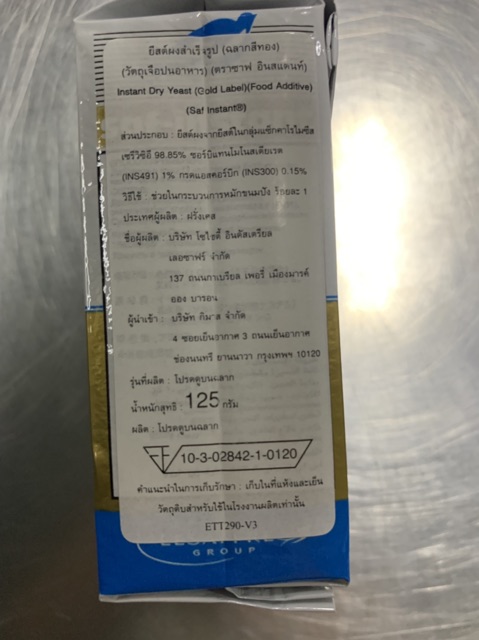 ยีสต์ผงสำเร็จรูป (ฉลากสีทอง)
(วัตถุเจือปนอาหาร) (ตราซาฟ อินสแตนท์)
Instant Dry Yeast (Gold Label)(Food Additive)
(Saf Instant®)
ส่วนประกอบ : ยีสต์ผงจากยีสต์ในกลุ่มแซ็กคาโรไมซีส
เซรีวิซิอี 98.85% ซอร์บิแทนโมโนสเตียเรต
(INS491) 1% กรดแอสคอร์บิก (INS300) 0.15%
วิธีใช้ : ช่วยในกระบวนการหมักขนมปัง ร้อยละ 1
ประเทศผู้ผลิต : ฝรั่งเศส
ชื่อผู้ผลิต : บริษัท โซไซตี้ อินดัสเตรียล
เลอซาฟร์ จำกัด
137 ถนนกาเบรียล เพอรี่ เมืองมารค์
ออง บารอน
ผู้นำเข้า : บริษัท จำกัด
4 ซอยเย็นอากาศ 3 ถนนเย็นอากาศ
ช่องนนทรี ยานนาวา กรุงเทพฯ 10120
รุ่นที่ผลิต : โปรดดูบนฉลาก
น้ำหนักสุทธิ : 125 กรัม
ผลิต : โปรดดูบนฉลาก
10-3-02842-1-0120
คำแนะนำในการเก็บรักษา : เก็บในที่แห้งและเย็น
วัตถุดิบสำหรับใช้ในโรงงานผลิตเท่านั้น
ETT290-V3
GROUP